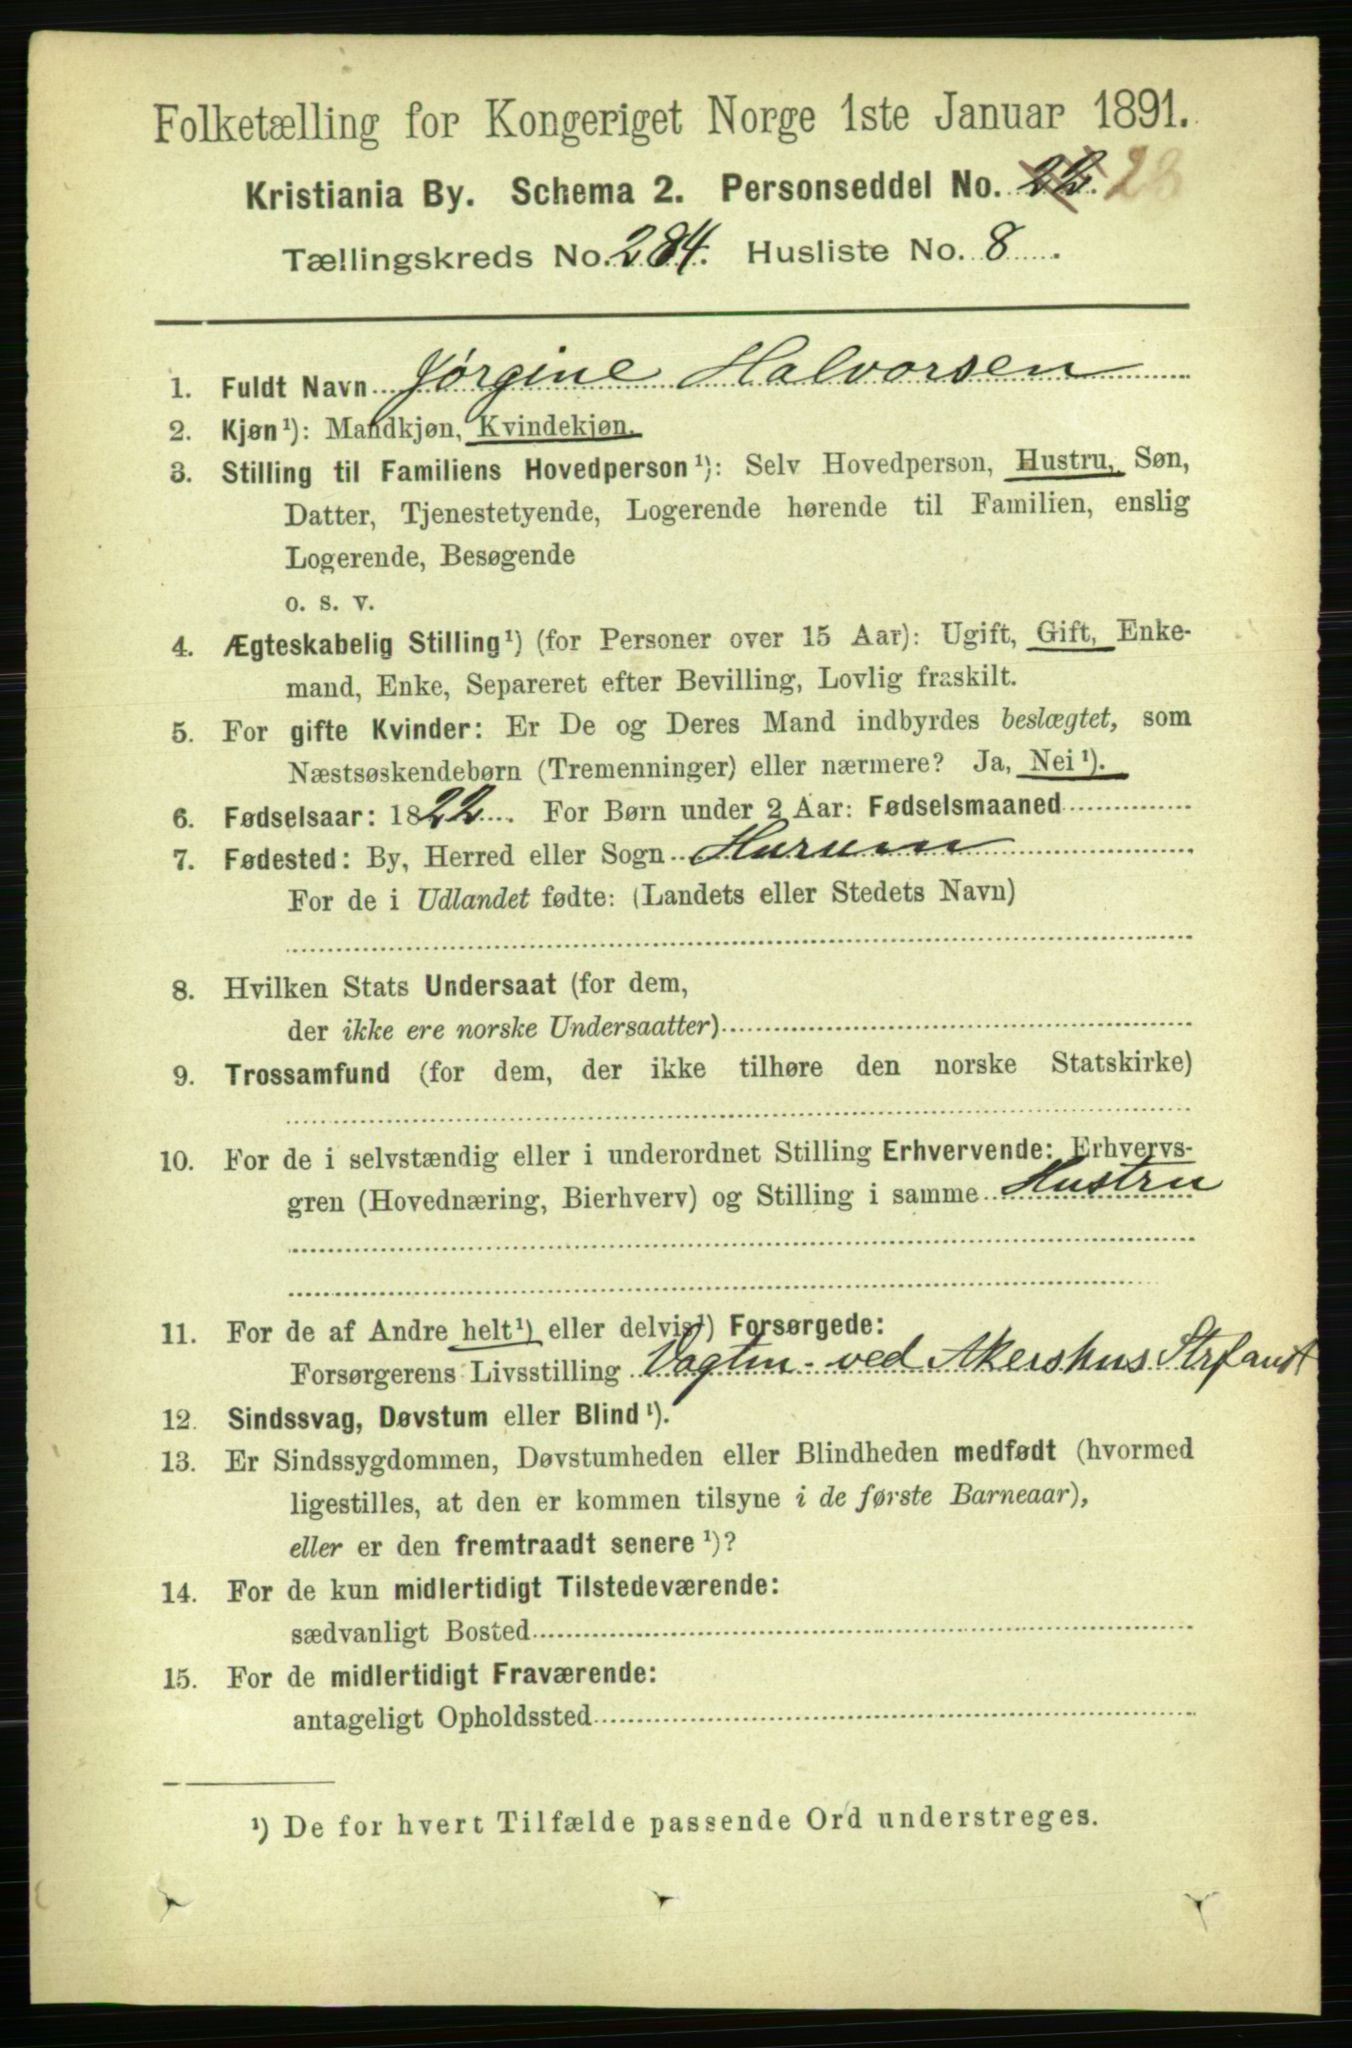 Folketælling for Kongeriget Norge 1ste Januar 1891.
Kristiania By. Schema 2. Personseddel No. 22. 28
Tællingskreds No. 284. Husliste No. 8
1. Fuldt Navn Jørgine Halvorsen
2. Kjøn¹): Mandkjøn, Kvindekjøn.
3. Stilling til Familiens Hovedperson¹): Selv Hovedperson, Hustru, Søn,
Datter, Tjenestetyende, Logerende hørende til Familien, enslig
Logerende, Besøgende
o. s. v.
4. Ægteskabelig Stilling¹) (for Personer over 15 Aar): Ugift, Gift, Enke-
mand, Enke, Separeret efter Bevilling, Lovlig fraskilt.
5. For gifte Kvinder: Er De og Deres Mand indbyrdes beslægtet, som
Næstsøskendebørn (Tremenninger) eller nærmere? Ja, Nei¹).
6. Fødselsaar: 1822. For Børn under 2 Aar: Fødselsmaaned
7. Fødested: By, Herred eller Sogn Hurum
For de i Udlandet fødte: (Landets eller Stedets Navn)
8. Hvilken Stats Undersaat (for dem,
der ikke ere norske Undersaatter)
9. Trossamfund (for dem, der ikke tilhøre den norske Statskirke)
10. For de i selvstændig eller i underordnet Stilling Erhvervende: Erhvervs-
gren (Hovednæring, Bierhverv) og Stilling i samme Hustru
11. For de af Andre helt¹) eller delvis¹) Forsørgede:
Forsørgerens Livsstilling Vagtm. ved Akershus Strfanst
12. Sindssvag, Døvstum eller Blind¹).
13. Er Sindssygdommen, Døvstumheden eller Blindheden medfødt (hvormed
ligestilles, at den er kommen tilsyne i de første Barneaar),
eller er den fremtraadt senere¹)?
14. For de kun midlertidigt Tilstedeværende:
sædvanligt Bosted
15. For de midlertidigt Fraværende:
antageligt Opholdssted
¹) De for hvert Tilfælde passende Ord understreges.